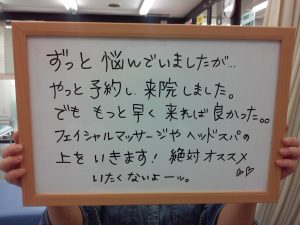 ずっと悩んでいましたが…
やっと予約し、来院しました。
でももっと早く来れば良かった。。
フェイシャルマッサージやヘッドスパの
上をいきます！絶対オススメ
いたくないよーッ。♡♡